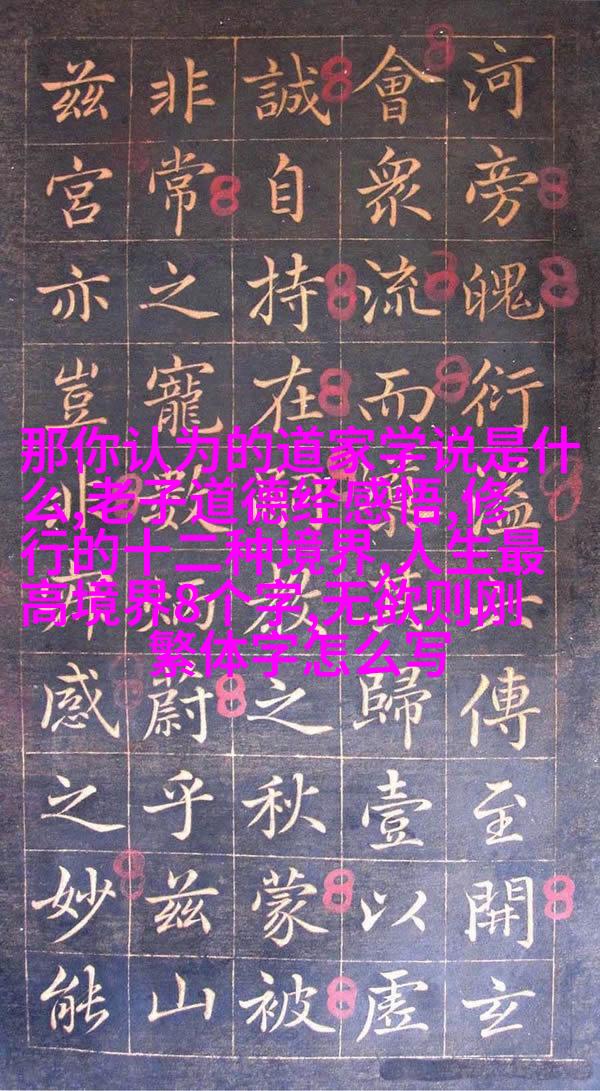 河旁魄衍溢傳至開玄
會眾流而歸壹以虛
誠自持在之秋蒙被
非常之寵尉乎兹山
兹宮亦豈非感之妙能
那你认为的道家学说是什
么,老子道德经感悟,修
行的十二种境界,人生最
高境界8个字,无欲则刚
繁体字怎么写